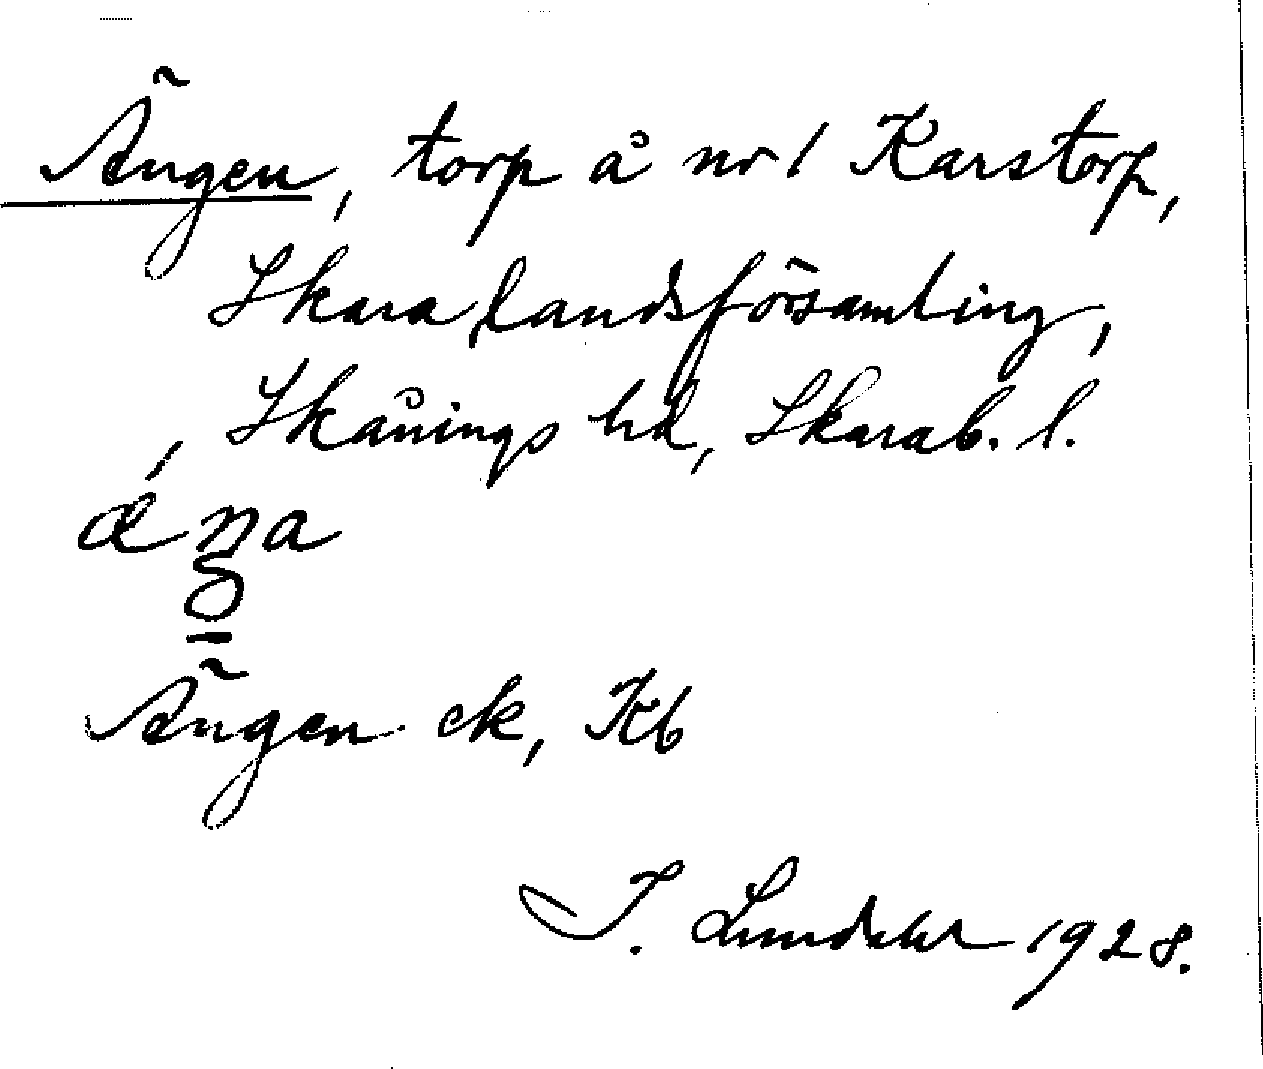 Ängen, torp å nr 1 Karstorp,
Skara landsförsamling,
Skånings hd, Skarab. l.
Ängen ek, Kb
I. Lundahl 1928.